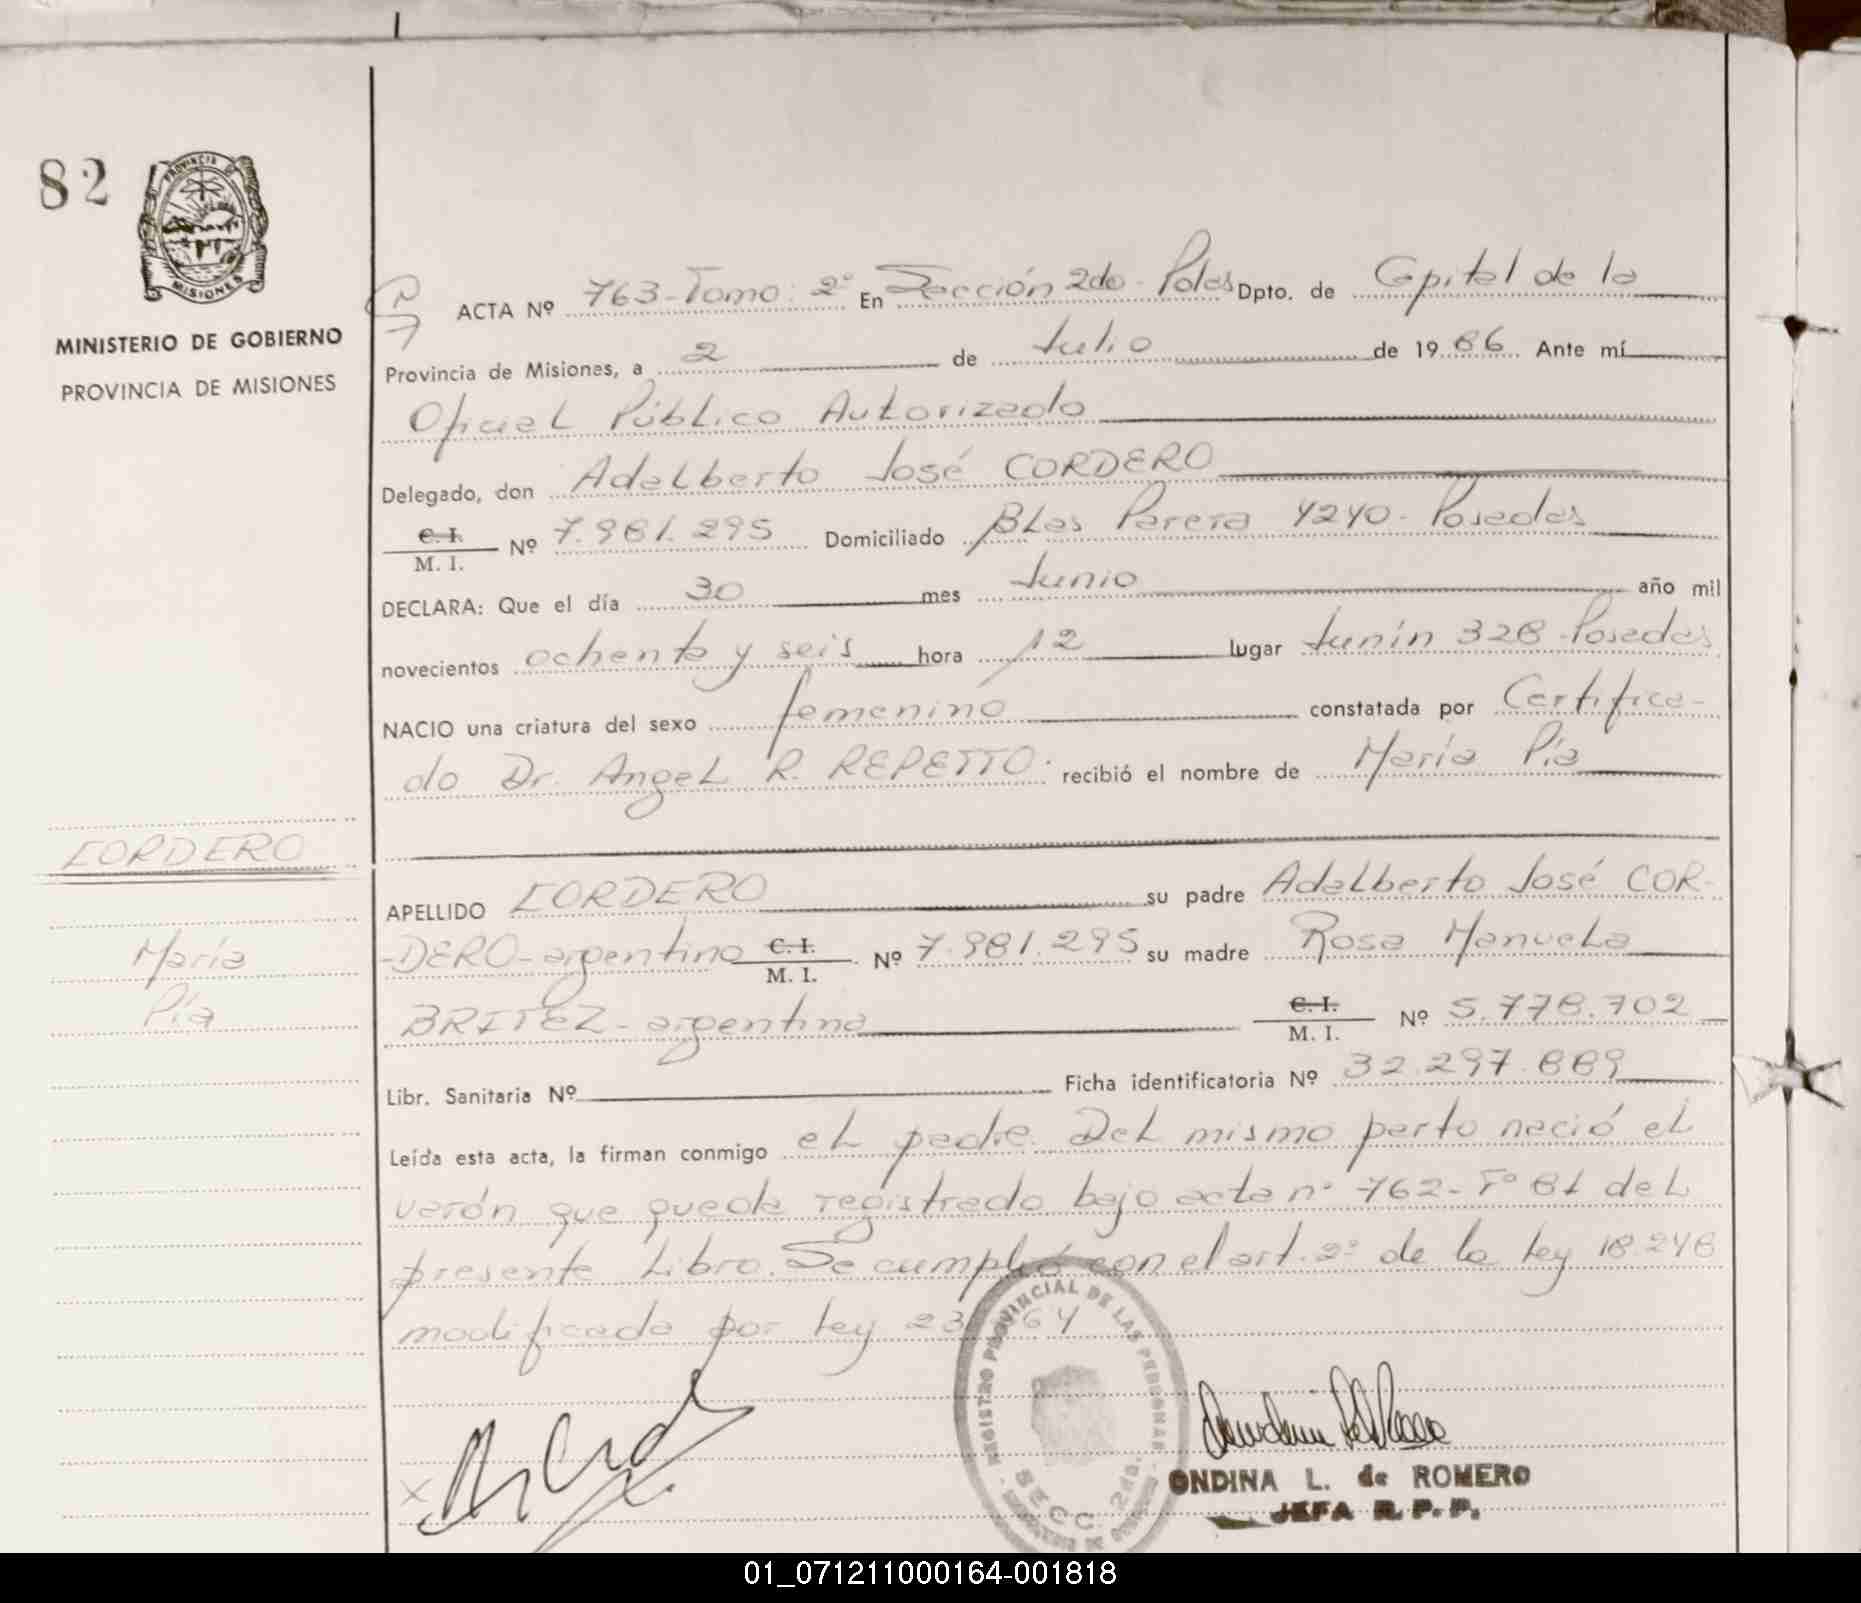 82
PROVINCIA DE
MISIONES
MINISTERIO DE GOBIERNO
PROVINCIA DE MISIONES
ACTA Nº 763-Tomo: 2º En Sección 2do- Pdas Dpto. de Capital de la
Provincia de Misiones, a 2 de Julio de 1986 Ante mí
Oficial Público Autorizado
Delegado, don Adalberto José CORDERO
C. I.
M. I. Nº 7.981.295 Domiciliado Blas Parera 4240- Posadas
DECLARA: Que el día 30 mes Junio año mil
novecientos ochenta y seis hora 12 lugar Junín 328-Posadas
NACIO una criatura del sexo femenino constatada por Certifica-
do Dr. Angel R. REPETTO. recibió el nombre de María Pía
CORDERO
APELLIDO CORDERO su padre Adalberto José COR-
-DERO-argentino C. I.
M. I. Nº 7.981.295 su madre Rosa Manuela
María
Pía
BRITEZ-argentina C. I.
M. I. Nº 5.778.702
Libr. Sanitaria Nº Ficha identificatoria Nº 32.297.889
Leída esta acta, la firman conmigo el padre. Del mismo parto nació el
varón que queda registrado bajo acta nº 762-Fº 81 del
presente Libro. Se cumplió con el art. 2º de la Ley 18.248
modificada por Ley 23 64
REGISTRO PROVINCIAL DE LAS PERSONAS
SECC. 2da.
X
ONDINA L. de ROMERO
JEFA R. P. P.
01_071211000164-001818